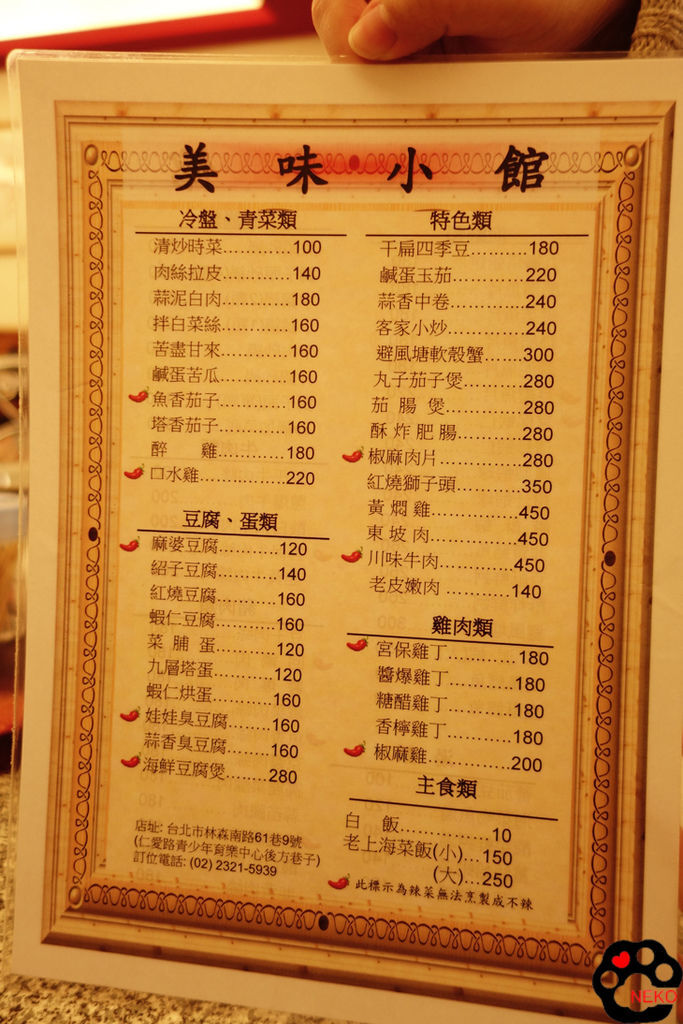 美味小館
冷盤、青菜類
清炒時菜............100
肉絲拉皮............140
蒜泥白肉............180
拌白菜絲............160
苦盡甘來............160
鹹蛋苦瓜............160
魚香茄子............160
塔香茄子............160
醉 雞............180
口水雞............220
豆腐、蛋類
麻婆豆腐...........120
紹子豆腐...........140
紅燒豆腐...........160
蝦仁豆腐...........160
菜脯蛋...........120
九層塔蛋...........120
蝦仁烘蛋...........160
娃娃臭豆腐........160
蒜香臭豆腐........160
海鮮豆腐煲........280
店址: 台北市林森南路61巷9號
(仁愛路青少年育樂中心後方巷子)
訂位電話: (02) 2321-5939
特色類
干扁四季豆..........180
鹹蛋玉茄.............220
蒜香中卷.............240
客家小炒.............240
避風塘軟殼蟹.......300
丸子茄子煲..........280
茄腸煲.............280
酥炸肥腸...........280
椒麻肉片.............280
紅燒獅子頭..........350
黃燜雞.............450
東坡肉.............450
川味牛肉............450
老皮嫩肉 ...........140
雞肉類
宮保雞丁............180
醬爆雞丁...........180
糖醋雞丁...........180
香檸雞丁...........180
椒麻雞..............200
主食類
白 飯...............10
老上海菜飯(小)...150
(大)...250
此標示為辣菜無法烹製成不辣
NEKO